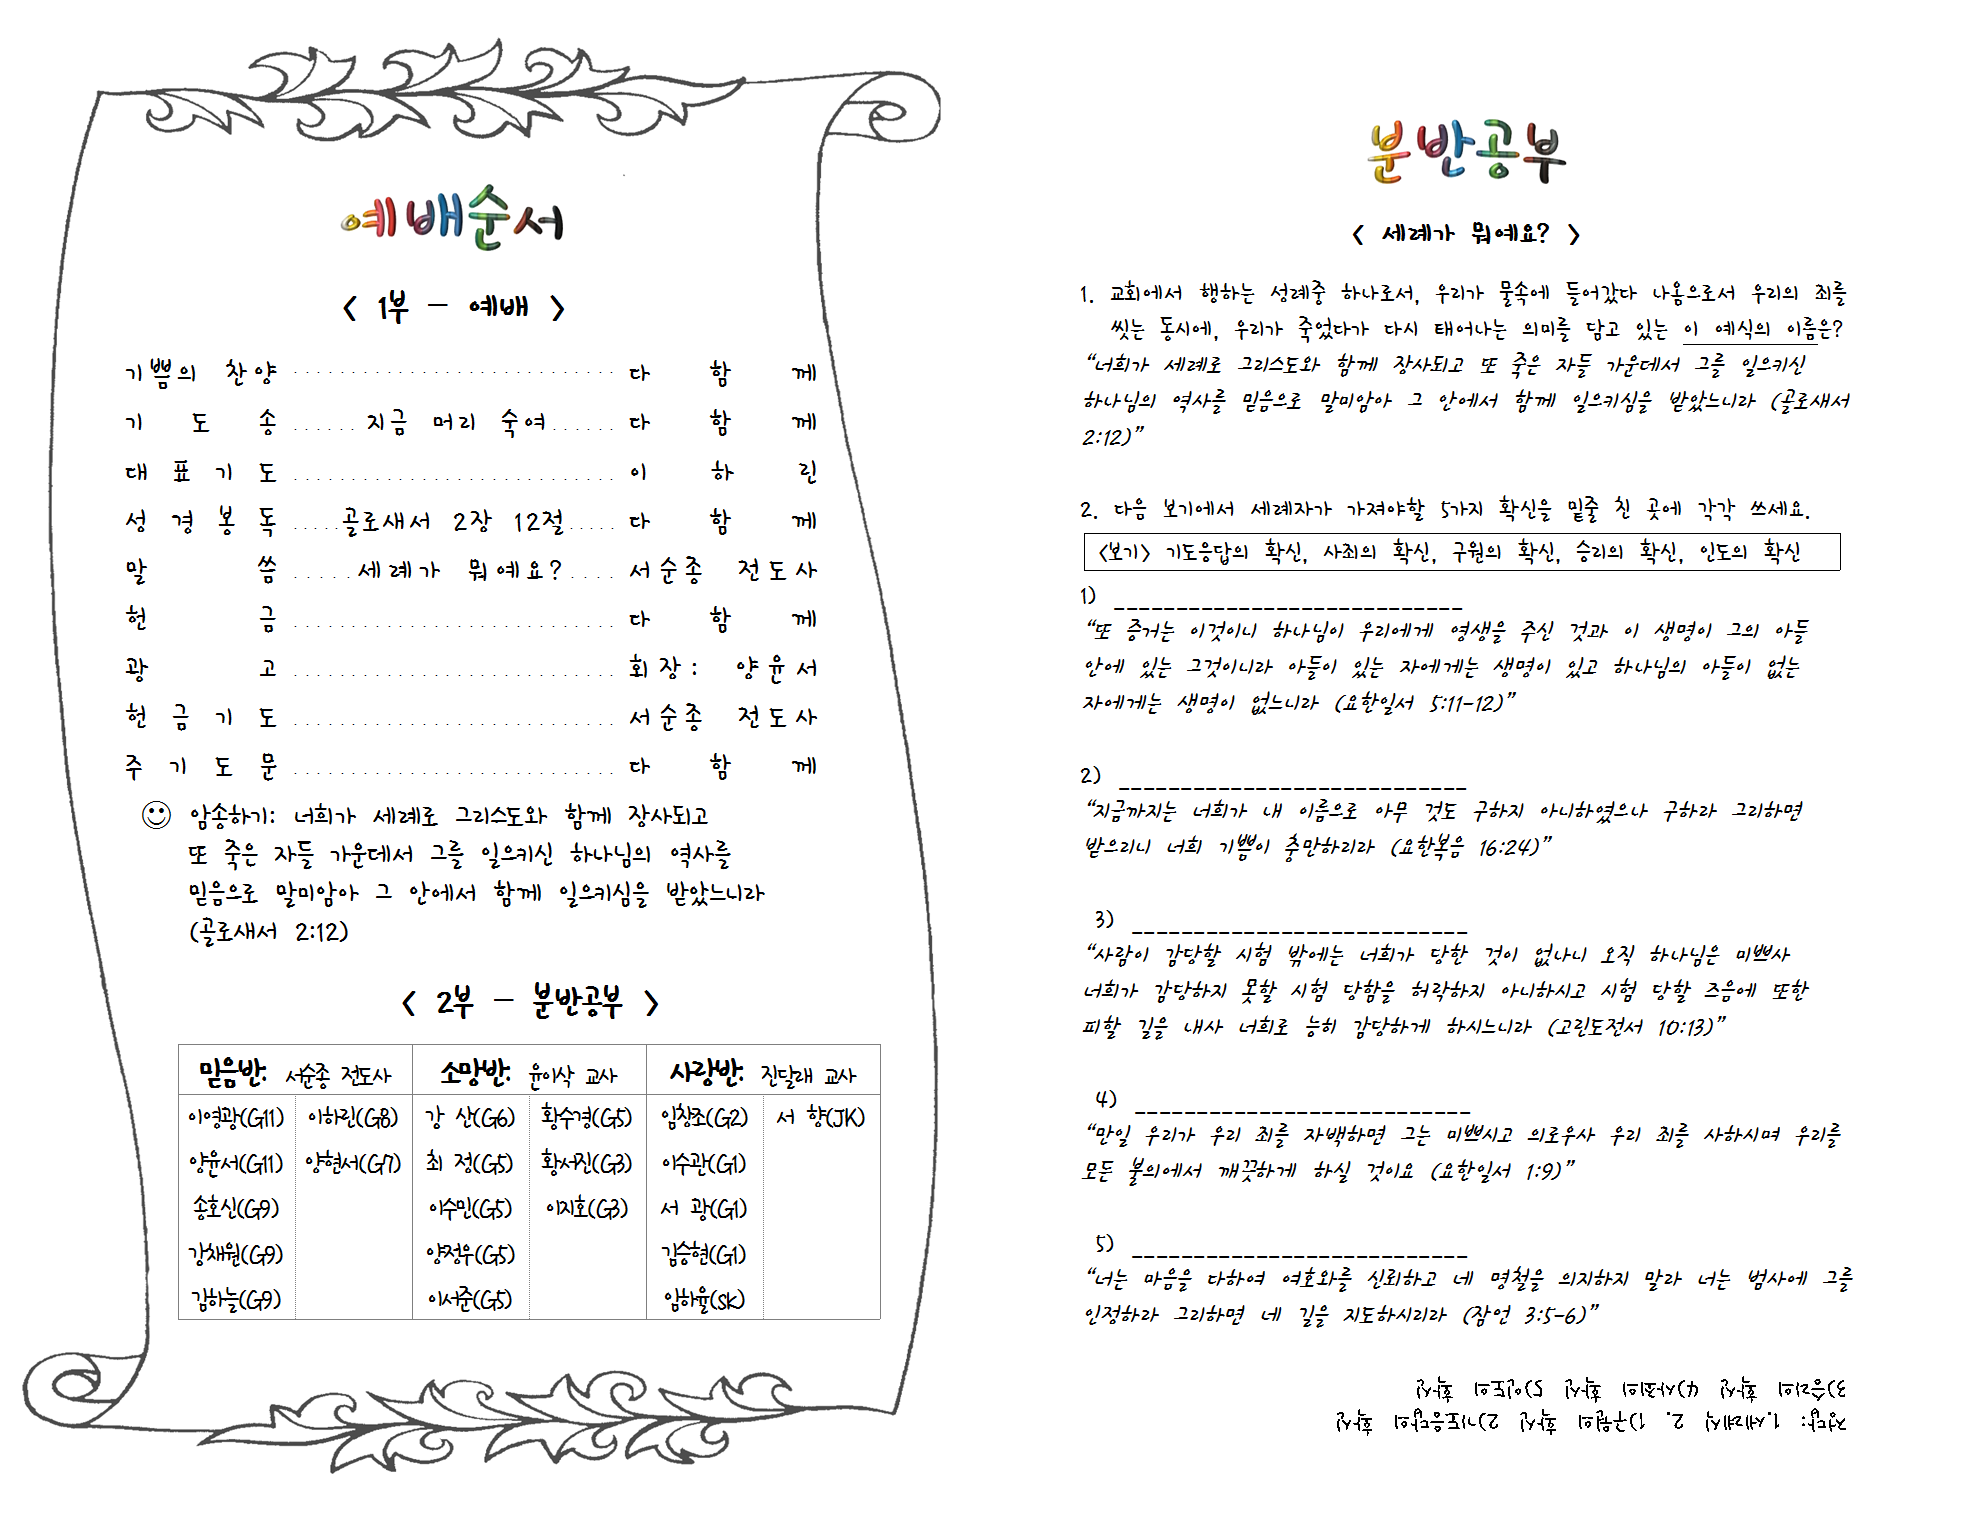 예배순서
< 1부 - 예배 >
기쁨의 찬양 ............................ 다 함 께
기 도 송 ...... 지금 머리 숙여 ...... 다 함 께
대 표 기 도 ............................ 이 하 린
성 경 봉 독 ..... 골로새서 2장 12절 ..... 다 함 께
말 씀 ..... 세례가 뭐예요? .... 서순종 전도사
헌 금 ............................ 다 함 께
광 고 ............................ 회장: 양윤서
헌 금 기 도 ............................ 서순종 전도사
주 기 도 문 ............................ 다 함 께
암송하기: 너희가 세례로 그리스도와 함께 장사되고
또 죽은 자들 가운데서 그를 일으키신 하나님의 역사를
믿음으로 말미암아 그 안에서 함께 일으키심을 받았느니라
(골로새서 2:12)
< 2부 - 분반공부 >
믿음반: 서순종 전도사 소망반: 윤이삭 교사 사랑반: 진달래 교사
이영광(G11) 이하린(G8) 강 산(G6) 황수경(G5) 임창조(G2) 서 향(JK)
양윤서(G11) 양현서(G7) 최 정(G5) 황서진(G3) 이수관(G1)
송호신(G9) 이수민(G5) 이지호(G3) 서 광(G1)
강채원(G9) 양정우(G5) 김승현(G1)
김하늘(G9) 이서준(G5) 임하율(SK)
분반공부
< 세례가 뭐예요? >
1. 교회에서 행하는 성례중 하나로서, 우리가 물속에 들어갔다 나옴으로서 우리의 죄를
씻는 동시에, 우리가 죽었다가 다시 태어나는 의미를 담고 있는 이 예식의 이름은?
“너희가 세례로 그리스도와 함께 장사되고 또 죽은 자들 가운데서 그를 일으키신
하나님의 역사를 믿음으로 말미암아 그 안에서 함께 일으키심을 받았느니라 (골로새서
2:12)”
2. 다음 보기에서 세례자가 가져야할 5가지 확신을 밑줄 친 곳에 각각 쓰세요.
<보기> 기도응답의 확신, 사죄의 확신, 구원의 확신, 승리의 확신, 인도의 확신
1) ____________________________
“또 증거는 이것이니 하나님이 우리에게 영생을 주신 것과 이 생명이 그의 아들
안에 있는 그것이니라 아들이 있는 자에게는 생명이 있고 하나님의 아들이 없는
자에게는 생명이 없느니라 (요한일서 5:11-12)”
2) ____________________________
“지금까지는 너희가 내 이름으로 아무 것도 구하지 아니하였으나 구하라 그리하면
받으리니 너희 기쁨이 충만하리라 (요한복음 16:24)”
3) ___________________________
“사람이 감당할 시험 밖에는 너희가 당한 것이 없나니 오직 하나님은 미쁘사
너희가 감당하지 못할 시험 당함을 허락하지 아니하시고 시험 당할 즈음에 또한
피할 길을 내사 너희로 능히 감당하게 하시느니라 (고린도전서 10:13)”
4) ___________________________
“만일 우리가 우리 죄를 자백하면 그는 미쁘시고 의로우사 우리 죄를 사하시며 우리를
모든 불의에서 깨끗하게 하실 것이요 (요한일서 1:9)”
5) ___________________________
“너는 마음을 다하여 여호와를 신뢰하고 네 명철을 의지하지 말라 너는 범사에 그를
인정하라 그리하면 네 길을 지도하시리라 (잠언 3:5-6)”
정답: 1.세례식 2. 1)구원의 확신 2)기도응답의 확신
3)승리의 확신 4)사죄의 확신 5)인도의 확신